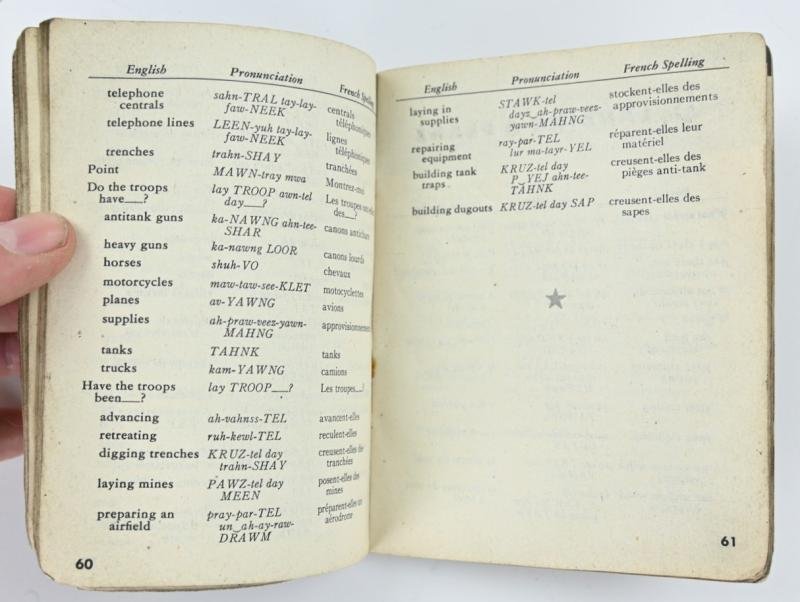 English Pronunciation French Spelling
telephone centrals sahn-TRAL tay-lay-faw-NEEK centrals téléphoniques
telephone lines LEEN-yuh tay-lay-faw-NEEK lignes téléphoniques
trenches trahn-SHAY tranchées
Point MAWN-tray mwa Montrez-moi
Do the troops have___? lay TROOP awn-tel day___? Les troupes des___?
antitank guns ka-NAWNG ahn-tee-SHAR canons antichars
heavy guns ka-nawng LOOR canons lourds
horses shuh-VO chevaux
motorcycles maw-taw-see-KLET motocyclettes
planes av-YAWNG avions
supplies ah-praw-veez-yawn-MAHNG approvisionnement
tanks TAHNK tanks
trucks kam-YAWNG camions
Have the troops been___? lay TROOP___? Les troupes___?
advancing ah-vahnss-TEL avancent-elles
retreating ruh-kewl-TEL reculent-elles
digging trenches KRUZ-tel day trahn-SHAY creusent-elles des tranchées
laying mines PAWZ-tel day MEEN posent-elles des mines
preparing an airfield pray-par-TEL un_ah-ay-raw-DRAWM préparent-elles un aérodrome
60
English Pronunciation French Spelling
laying in supplies STAWK-tel dayz_ah-praw-veez-yawn-MAHNG stockent-elles des approvisionnements
repairing equipment ray-par-TEL lur ma-tayr-YEL réparent-elles leur matériel
building tank traps KRUZ-tel day P_YEJ ahn-tee-TAHNK creusent-elles des pièges anti-tank
building dugouts KRUZ-tel day SAP creusent-elles des sapes
61